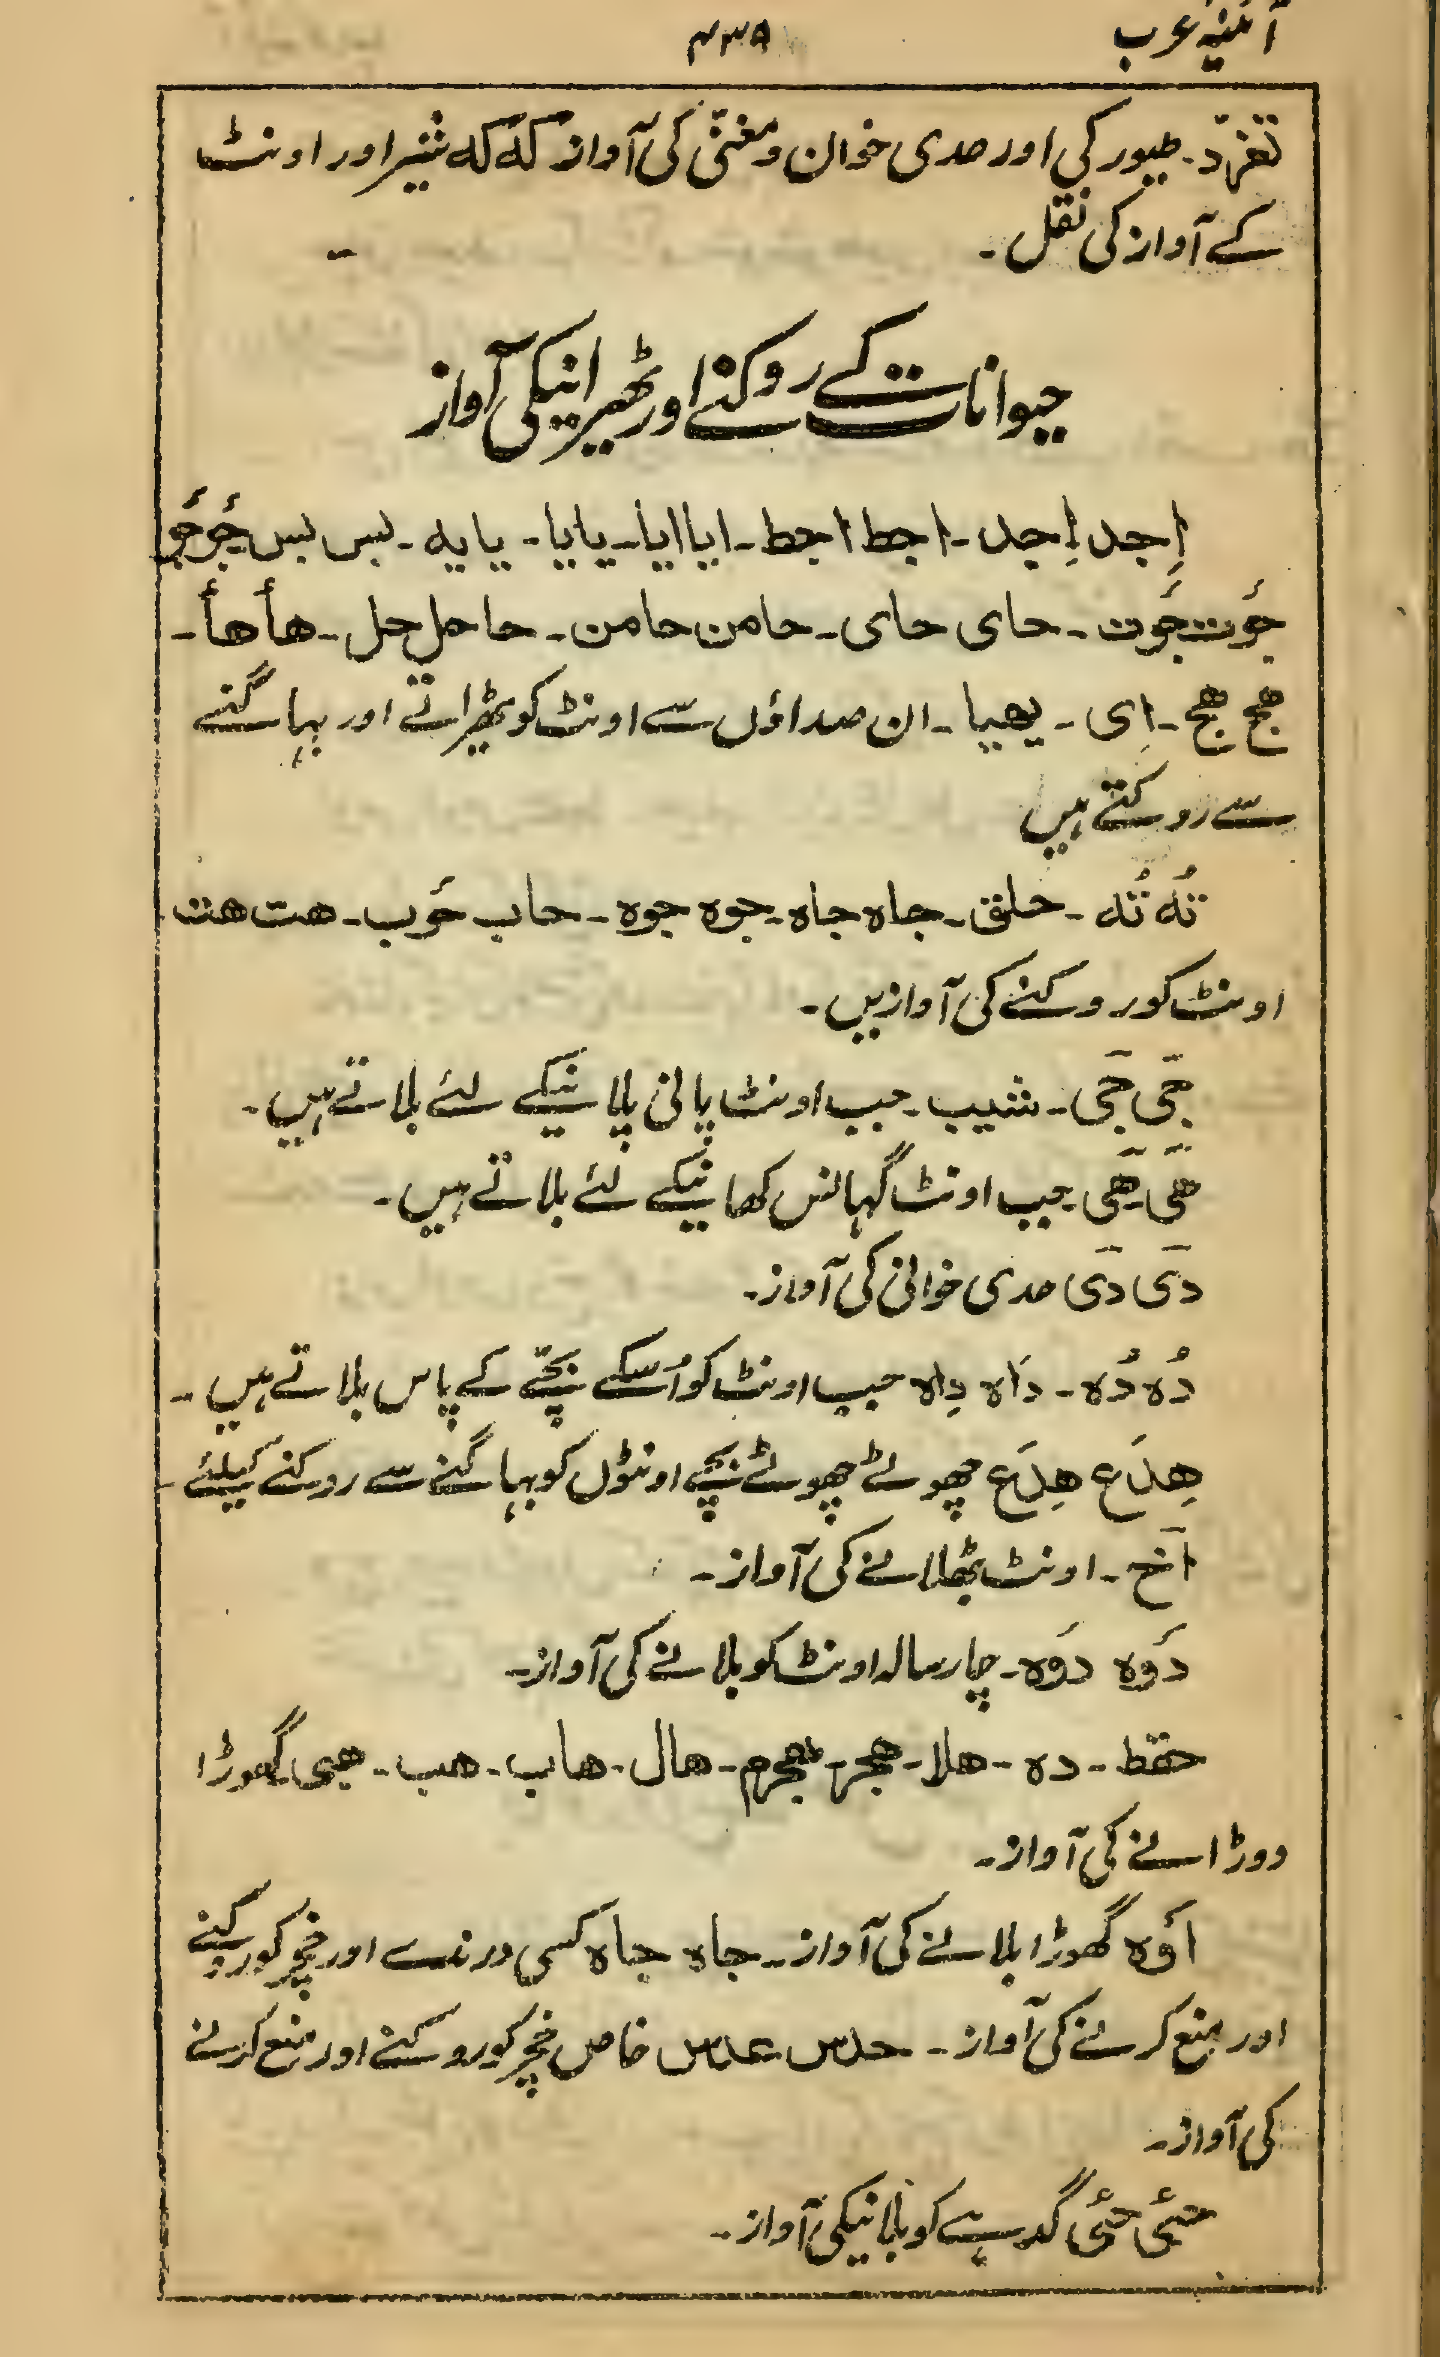 آئینۂ عرب ۴۳۹
تغرّد۔ طیور کی اور حدی خوان و مغنّی کی آواز کہ کہ شیر اور اونٹ
کے آواز کی نقل۔
حیوانات کے روکنے اور ٹھیرانیکی آواز
اِجد اِجد۔ اجط اجط۔ ایا ایا۔ یا یا۔ یا یہ۔ بس بس جَؤجَؤ
جَؤت جَؤت۔ حای حای۔ حامن حامن۔ حا حل حل۔ هأ هأ۔
هج هج۔ اِی۔ یهیا۔ ان صداؤں سے اونٹ کو ٹھیراتے اور بہاگنے
سے روکتے ہیں
تُه تُه۔ حلق۔ جاه جاه۔ جوه جوه۔ حاب حَوب۔ هت هت
اونٹ کو روکنے کی آوازیں۔
جَی جَی۔ شیب۔ جب اونٹ پانی پلانیکے لئے بلاتے ہیں۔
هَی هَی جب اونٹ گہانس کھانیکے لئے بلاتے ہیں۔
دَی دَی حدی خوانی کی آواز۔
دُه دُه۔ دَاه دِاه جب اونٹ کو اُسکے بچّے کے پاس بلاتے ہیں۔
هِدَع هِدَع چھوٹے چھوٹے بچے اونٹوں کو بہاگنے سے روکنے کیلئے۔
آخ۔ اونٹ بٹھلانے کی آواز۔
دَوه دَوه۔ چار سالہ اونٹ کو بلانے کی آواز۔
حقط۔ ده۔ هلا۔ هجر۔ هجرم۔ هال۔ هاب۔ هب۔ هبی گھوڑا
دوڑانے کی آواز۔
اَوه گھوڑا بلانے کی آواز۔ جاه جاه کسی درندے اور خچر کو روکنے
اور منع کرنے کی آواز۔ حدس عدس خاص خچر کو روکنے اور منع کرنے
کی آواز۔
حئی حئی گدہے کو بلانیکی آواز۔